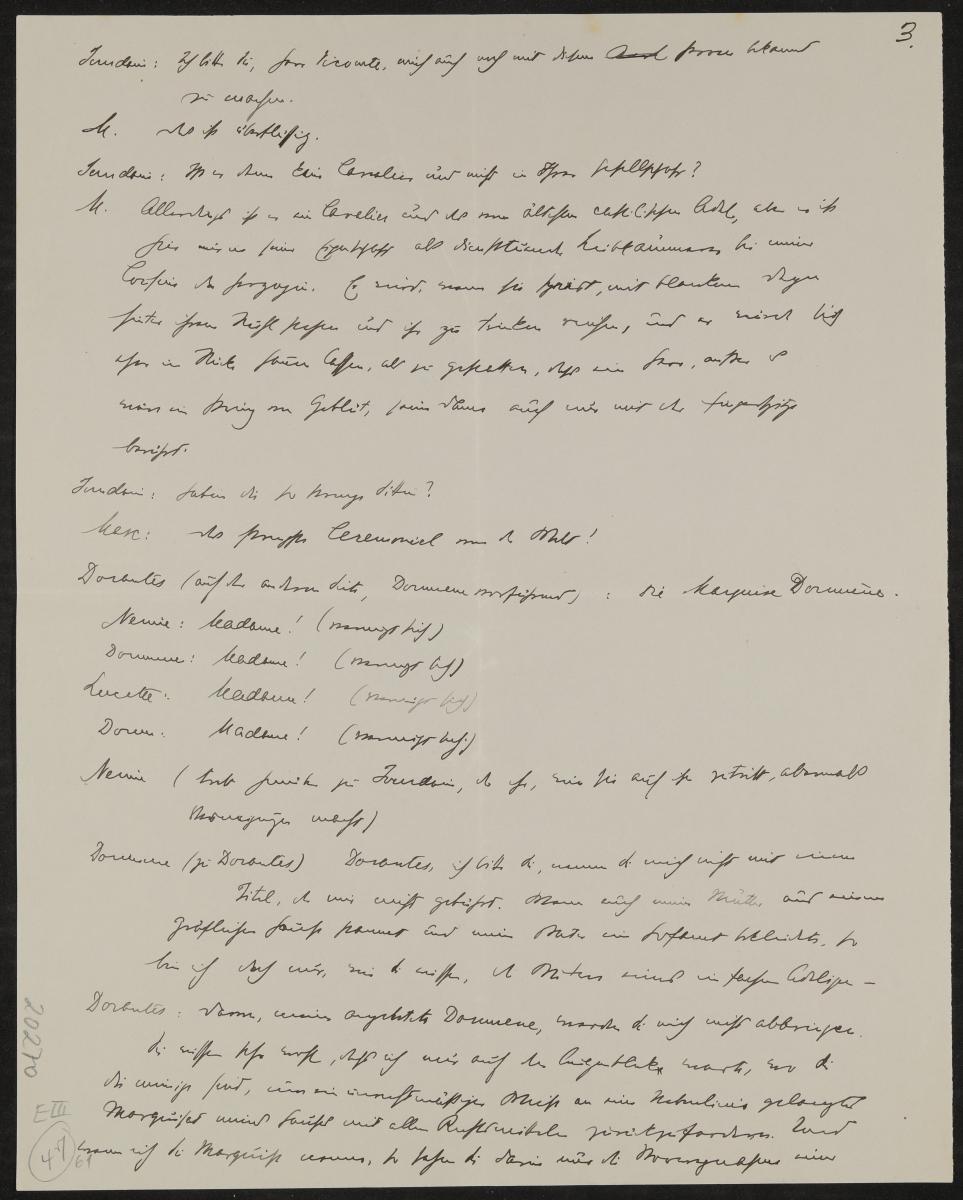 3.
Jourdain: Ich bitte Sie, Herr Vicomte, mich auch noch mit diesem Herrn bekannt
zu machen.
M. Das ist überflüssig.
Jourdain: Ist es denn kein Cavalier und nicht in Ihrer Gesellschaft?
M. Allerdings ist es ein Cavalier und das vom ältesten Adel, aber er ist
hier nur in seiner Eigenschaft als diensttuender bei meiner
Cousine der Herzogin. Er wird, wenn sie speist, mit blankem Degen
hinter ihrem Stuhl stehen und ihr zu trinken reichen, und er wird sich
eher in Stücke hauen lassen, als zu gestatten, dass ein Herr, außer es
wäre ein Prinz von Geblüt, seine Dame auch nur mit der Fingerspitze
berührt.
Jourdain: Haben Sie so strenge Sitten?
Merc: Das strengste Ceremoniell von der Welt!
Dorantes (auf der andern Seite, Dorimene vorführend): Die Marquise Dorimène.
Nerine: Madame! (verneigt sich)
Dorimene: Madame! (verneigt sich)
Lucette: Madame! (verneigt sich)
Dorim: Madame! (verneigt sich)
Nerine (tritt zu Jourdain, der ihr, wie sie auf ihn zutritt, abermals
Verneigungen macht)
Dorimene (zu Dorantes) Dorantes, ich bitte Sie, nennen Sie mich nicht mit einem
Titel, der mir nicht gebührt. Wenn auch meine Mutter aus einem
gräflichen Hause stammt und mein Vater ein Hofamt bekleidete, so
bin ich doch nur, wie Sie wissen, die Witwe eines einfachen Adeligen —
Dorantes: Davon, meine angebetete Dorimene, werden Sie mich nicht abbringen.
Sie wissen sehr wohl, dass ich nur auf den Augenblick warte, wo Sie
die meinige sind, um ein Recht an eine gelangte
Marquisat meines Hauses mit allen Rechtsmitteln zurückzufordern. Und
wenn ich Sie Marquise nenne, so sehen Sie darin nur die Vorwegnahme einer
20270
E III
4 7
61